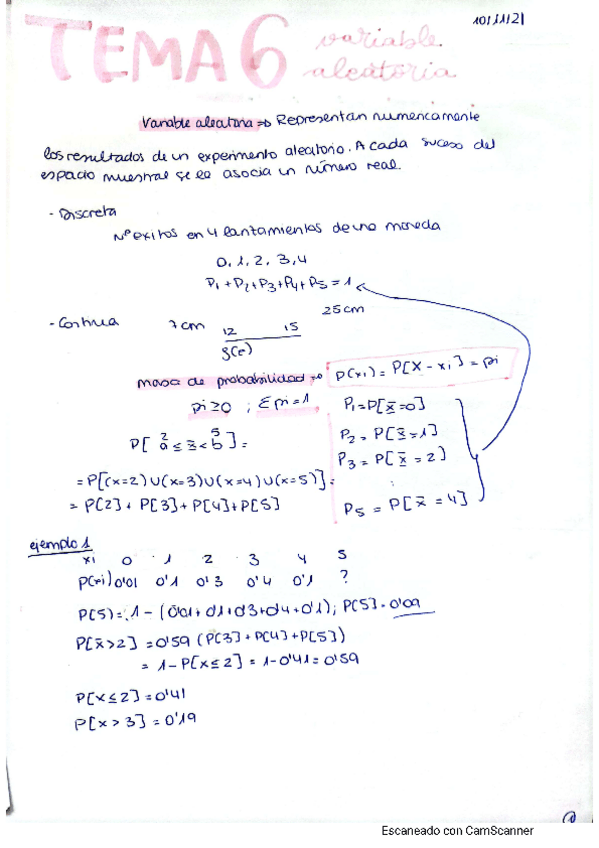 10/11/21
TEMA 6 variable
aleatoria
Variable aleatoria => Representan numericamente
los resultados de un experimento aleatorio. A cada suceso del
espacio muestral se le asocia un número real.
- Discreta
Nº exitos en 4 lanzamientos de una moneda
0, 1, 2, 3, 4
P1 + P2 + P3 + P4 + P5 = 1
25cm
- Continua 7cm 12 15
masa de probabilidad => P(xi) = P[X - xi] = pi
pi ≥ 0 ; Σpi = 1
P1 = P[x̄ = 0]
P2 = P[x̄ = 1]
P3 = P[x̄ = 2]
:
P5 = P[x̄ = 4]
2 5
P[ a ≤ x̄ < b ] =
= P[(x=2) U (x=3) U (x=4) U (x=5)] =
= P[2] + P[3] + P[4] + P[5]
ejemplo 1
xi 0 1 2 3 4 5
P(xi) 0'01 0'1 0'3 0'4 0'1 ?
P(5) = 1 - (0'01 + 0'1 + 0'3 + 0'4 + 0'1) ; P[5] = 0'09
P[x̄ > 2] = 0'59 (P[3] + P[4] + P[5])
= 1 - P[x ≤ 2] = 1 - 0'41 = 0'59
P[x ≤ 2] = 0'41
P[x > 3] = 0'19
1
Escaneado con CamScanner